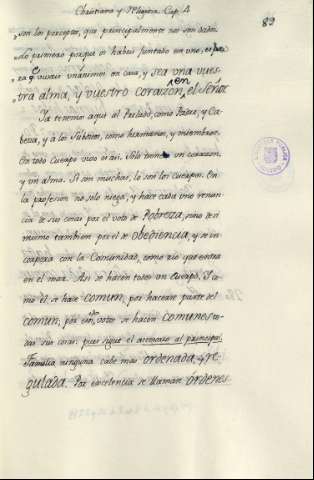 Christiano y Religioso Cap. 4
89
son los preceptos, que principalmente nos son dados.
Lo primero porque os habeis juntado en uno, es para
q.e vivais unánimes en casa, y sea una vues-
tra alma, y vuestro corazon en el Señor.
Ya tenemos aquí al Prelado, como Padre, y Ca-
beza, y á los Súbditos, como hermanos, y miembros.
En todo cuerpo vivo orán. Solo un corazon,
y un alma. Si son muchas, lo son los cuerpos. En
la profesion no solo niega, y hace cada uno renun-
cia de sus cosas por el voto de Pobreza, sino de si
mismo tambien por el de obediencia, y se in-
corpora con la Comunidad, como rio que entra
en el mar. Asi se hacen todos un cuerpo. Y co-
mo él se hace comun, por hacerse parte del
comun, por esos votos se hacen comunes to-
das sus cosas. pues sigue el accesorio al principal.
Familia ninguna cabe mas ordenada, y re-
gulada. Por excelencia se llaman órdenes